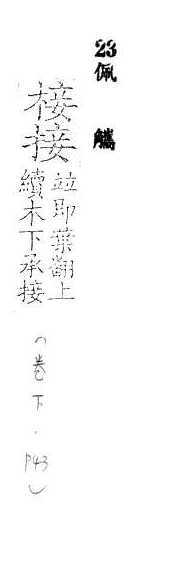 23
佩觿
椄接
竝即葉翻上
續木下承接
（卷下．P43）